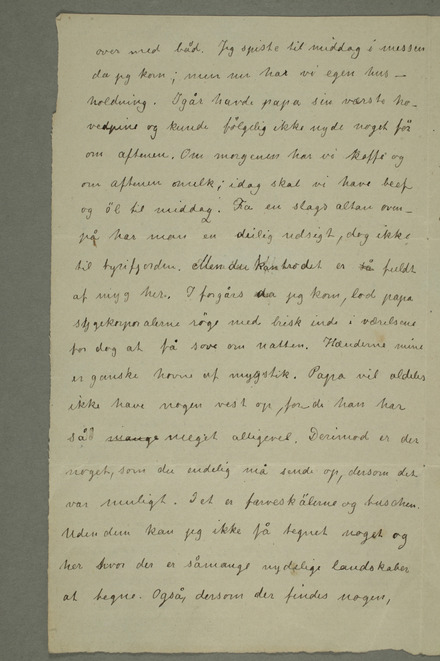 over med båd. Jeg spiste til middag i messen
da jeg kom; men nu har vi egen hus-
holdning. Igår havde papa sin værste ho-
vedpine og kunde følgelig ikke nyde noget før
om aftenen. Om morgenen har vi kaffe og
om aftenen melk; idag skal vi have beef
og øl til middag. Fra en slags altan oven-
på har man en deilig udsigt, dog ikke
til tyrifjorden. Men du er så fuldt
af myg her. I forgårs da jeg kom, lod papa
sygekorporalerne røge med brisk inde i værelserne
for dog at få sove om natten. Hænderne mine
er ganske hovne af mygstik. Papa vil aldeles
ikke have nogen vest op, for de han har
så meget alligevel. Derimod er der
noget, som du endelig må sende op, dersom det
var muligt. Det er farveskålerne og tuschen.
Uden dem kan jeg ikke få tegnet noget og
her hvor der er såmange nydelige landskaber
at tegne. Også, dersom der findes nogen,